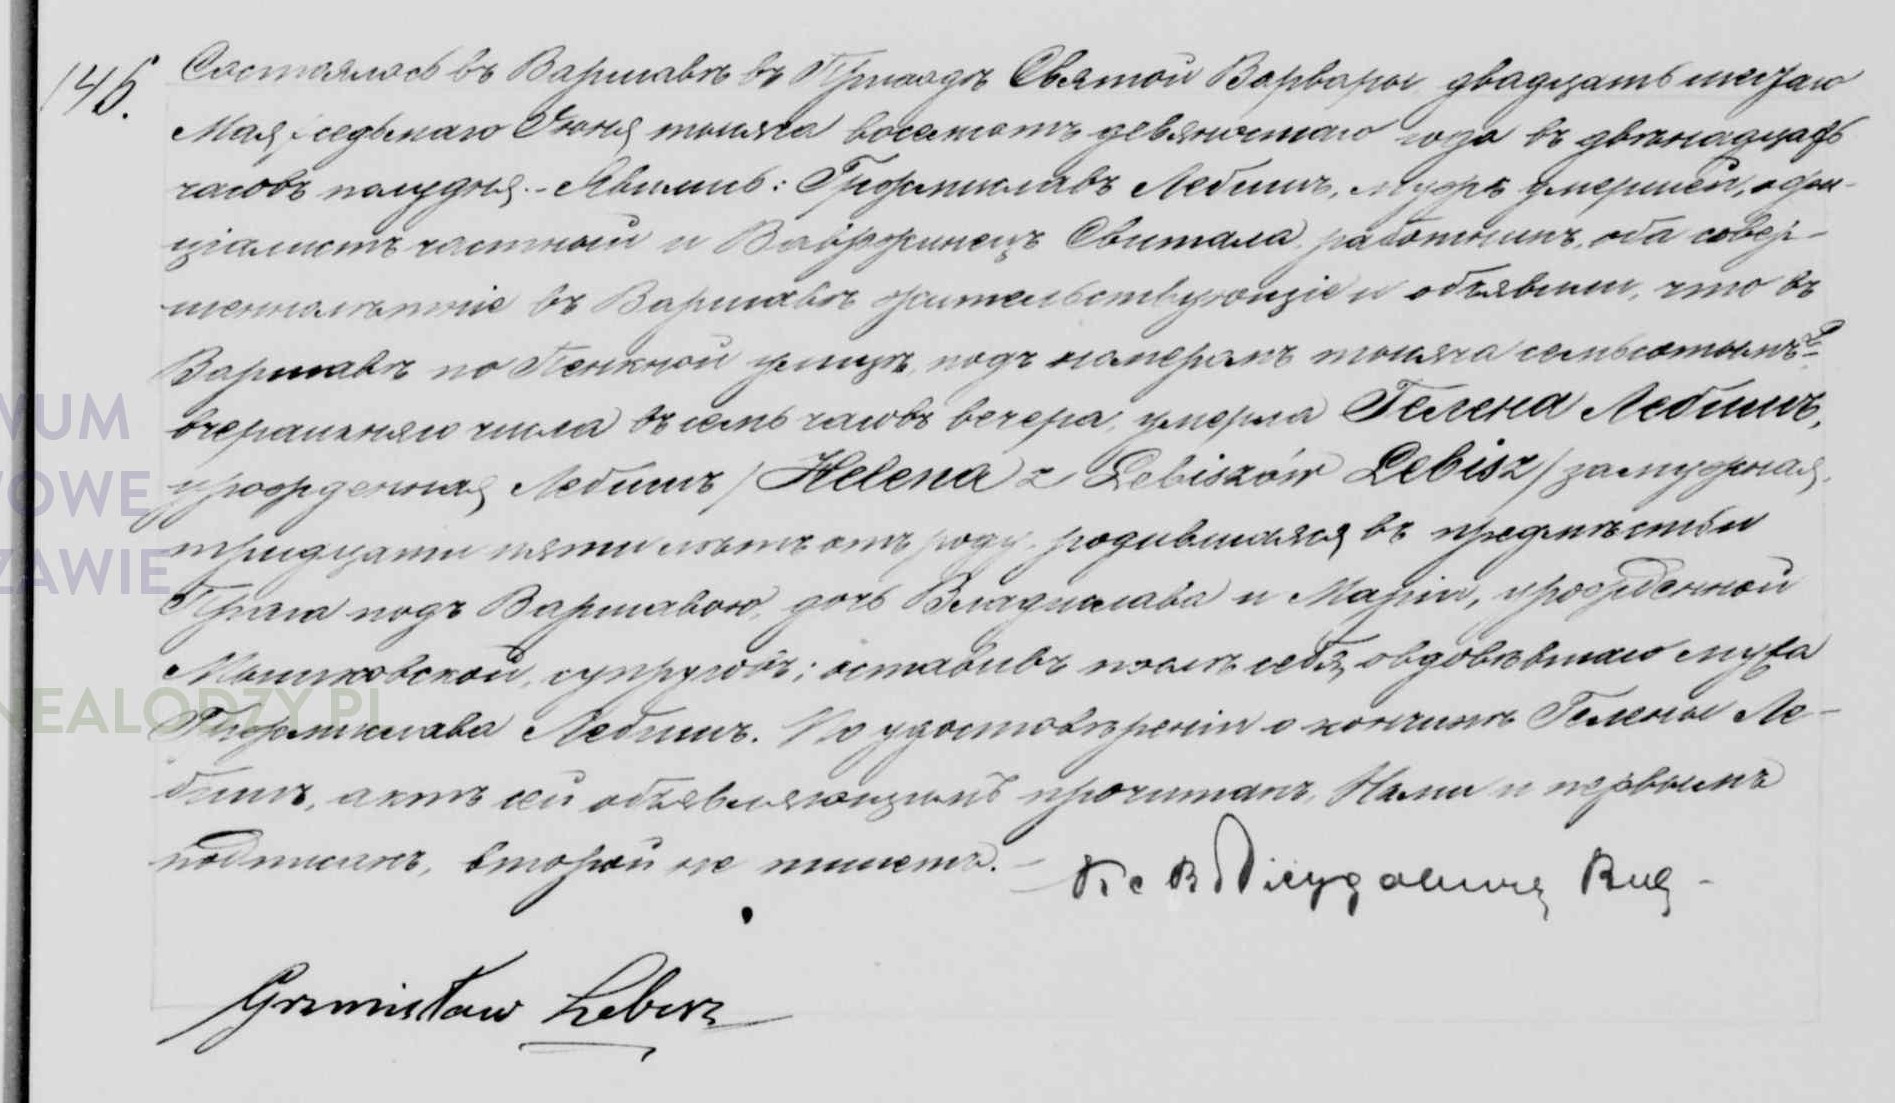 146.
Состоялось въ Варшавѣ въ Приходѣ Святой Варвары двадцать шестаго
Мая / седьмаго Іюня тысяча восемьсотъ девяностаго года въ двѣнадцать
часовъ полудня. - Явились: Гржмиславъ Лебишъ, мужъ умершей, офи-
ціалистъ частный и Вавржинецъ Свитала работникъ, оба совер-
шеннолѣтніе въ Варшавѣ жительствующіе и объявили, что въ
Варшавѣ по Пенкной улицѣ, подъ номеромъ тысяча семьсотымъ
вчерашняго числа въ семь часовъ вечера, умерла Гелена Лебишъ,
урожденная Лебишъ / Helena z Lebiszów Lebisz / замужная,
тридцати пяти лѣтъ отъ роду, родившаяся въ предмѣстьи
Прага подъ Варшавою, дочь Владислава и Маріи, урожденной
супруговъ; оставивъ послѣ себя овдовѣвшаго мужа
Гржмислава Лебишъ. По удостовѣреніи о кончинѣ Гелены Ле-
бишъ, актъ сей объявляющимъ прочитанъ, Нами и первымъ
подписанъ, второй не пишетъ. -
Кс В
Grzmisław Lebisz
WUM
WOWE
ZAWIE
NEALODZY.PL